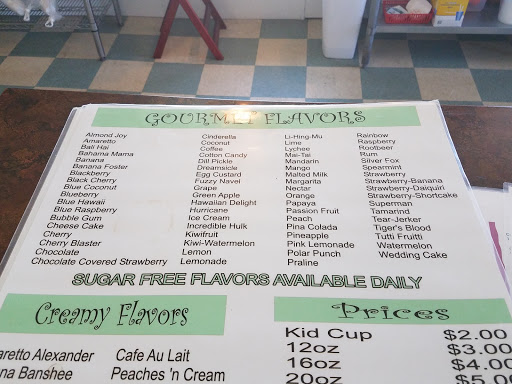 GOURMET FLAVORS
Almond Joy
Amaretto
Bali Hai
Bahama Mama
Banana
Banana Foster
Blackberry
Black Cherry
Blue Coconut
Blueberry
Blue Hawaii
Blue Raspberry
Bubble Gum
Cheese Cake
Cherry
Cherry Blaster
Chocolate
Chocolate Covered Strawberry
Cinderella
Coconut
Coffee
Cotton Candy
Dill Pickle
Dreamsicle
Egg Custard
Fuzzy Navel
Grape
Green Apple
Hawaiian Delight
Hurricane
Ice Cream
Incredible Hulk
Kiwifruit
Kiwi-Watermelon
Lemon
Lemonade
Li-Hing-Mu
Lime
Lychee
Mai-Tai
Mandarin
Mango
Malted Milk
Margarita
Nectar
Orange
Papaya
Passion Fruit
Peach
Pina Colada
Pineapple
Pink Lemonade
Polar Punch
Praline
Rainbow
Raspberry
Rootbeer
Rum
Silver Fox
Spearmint
Strawberry
Strawberry-Banana
Strawberry-Daiquiri
Strawberry-Shortcake
Superman
Tamarind
Tear-Jerker
Tiger's Blood
Tutti Fruitti
Watermelon
Wedding Cake
SUGAR FREE FLAVORS AVAILABLE DAILY
Creamy Flavors
aretto Alexander
na Banshee
Cafe Au Lait
Peaches 'n Cream
Prices
Kid Cup $2.00
12oz $3.00
16oz $4.00
20oz $5.0